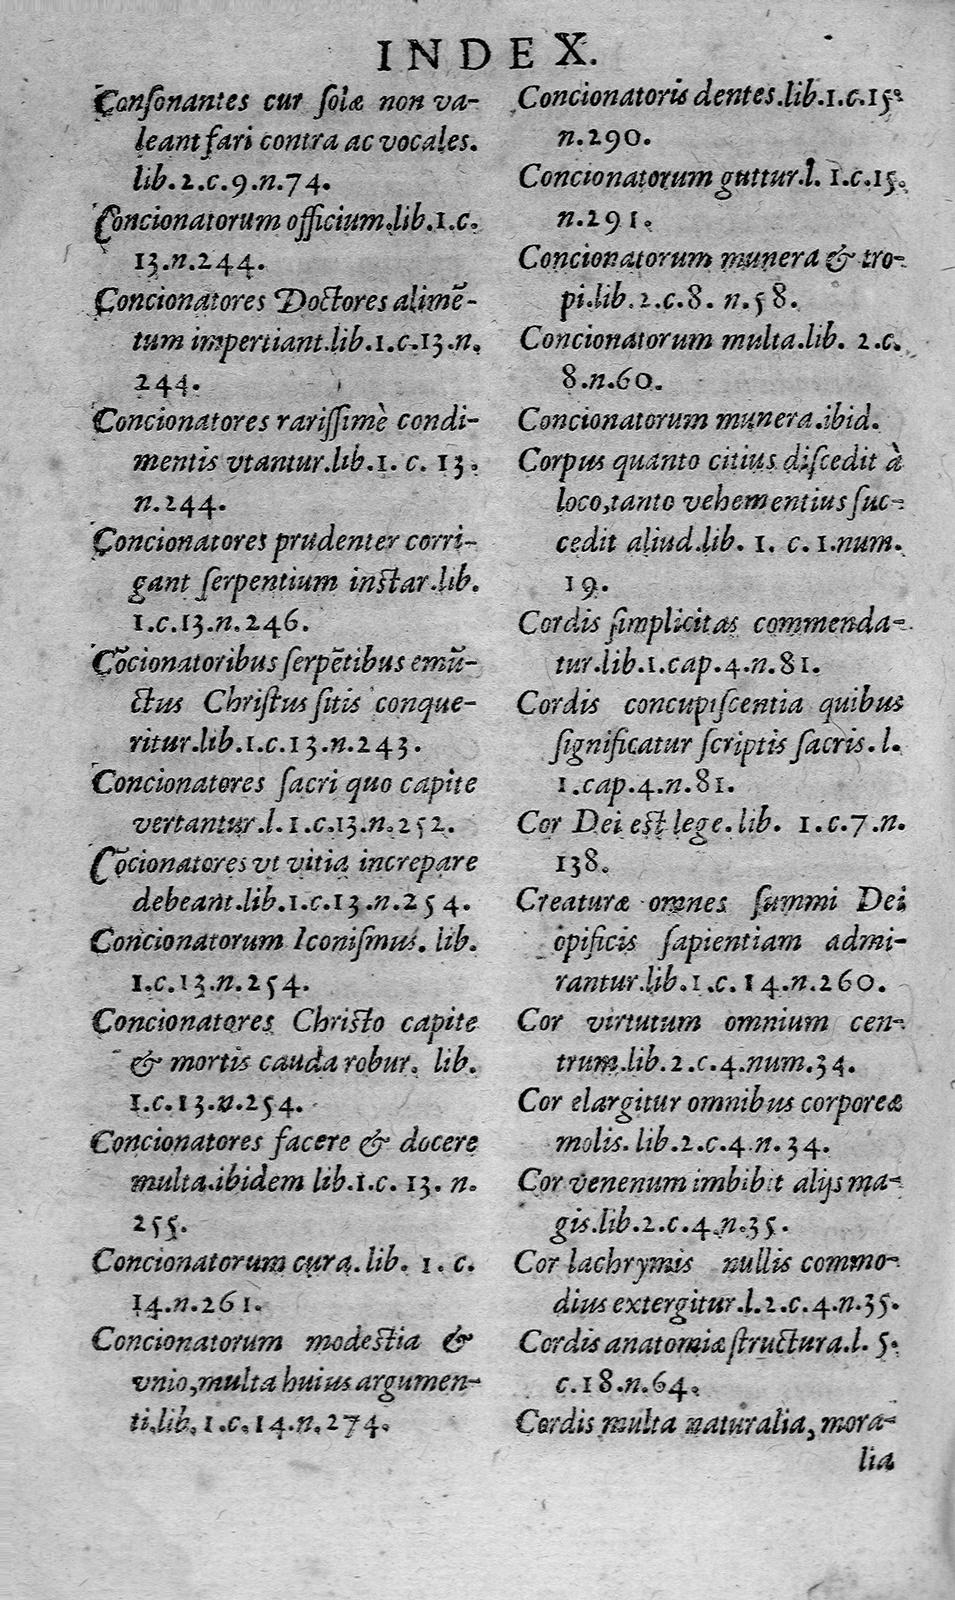 INDEX.
Consonantes cur solæ non va-
leant fari contra ac vocales.
lib.2.c.9.n.74.
Concionatorum officium.lib.1.c.
13.n.244.
Concionatores Doctores alimē-
tum impertiant.lib.1.c.13.n.
244.
Concionatores rarissimè condi-
mentis vtantur.lib.1. c. 13.
n.244.
Concionatores prudenter corri-
gant serpentium instar.lib.
1.c.13.n.246.
Cōcionatoribus serpētibus emū-
ctus Christus sitis conque-
ritur.lib.1.c.13.n.243.
Concionatores sacri quo capite
vertantur.l.1.c.13.n.252.
Cōcionatores vt vitia increpare
debeant.lib.1.c.13.n.254.
Concionatorum Iconismus. lib.
1.c.13.n.254.
Concionatores Christo capite
& mortis cauda robur. lib.
1.c.13.n.254.
Concionatores facere & docere
multa.ibidem lib.1.c. 13. n.
255.
Concionatorum cura. lib. 1. c.
14.n.261.
Concionatorum modestia &
vnio,multa huius argumen-
ti.lib. 1.c.14.n.274.
Concionatoris dentes.lib.1.c.15.
n.290.
Concionatorum guttur.l. 1.c.15.
n.291.
Concionatorum munera & tro-
pi.lib.2.c.8. n.58.
Concionatorum multa.lib. 2.c.
8.n.60.
Concionatorum munera.ibid.
Corpus quanto citius discedit à
loco,tanto vehementius suc-
cedit aliud.lib. 1. c.1.num.
19.
Cordis simplicitas commenda-
tur.lib.1.cap.4.n.81.
Cordis concupiscentia quibus
significatur scriptis sacris. l.
1.cap.4.n.81.
Cor Dei est lege. lib. 1.c.7.n.
138.
Creaturæ omnes summi Dei
opificis sapientiam admi-
rantur.lib.1.c.14.n.260.
Cor virtutum omnium cen-
trum.lib.2.c.4.num.34.
Cor elargitur omnibus corporeæ
molis. lib.2.c.4.n.34.
Cor venenum imbibit alijs ma-
gis.lib.2.c.4.n.35.
Cor lachrymis nullis commo-
dius extergitur.l.2.c.4.n.35.
Cordis anatomiæ structura.l. 5.
c.18.n.64.
Cordis multa naturalia, mora-
lia